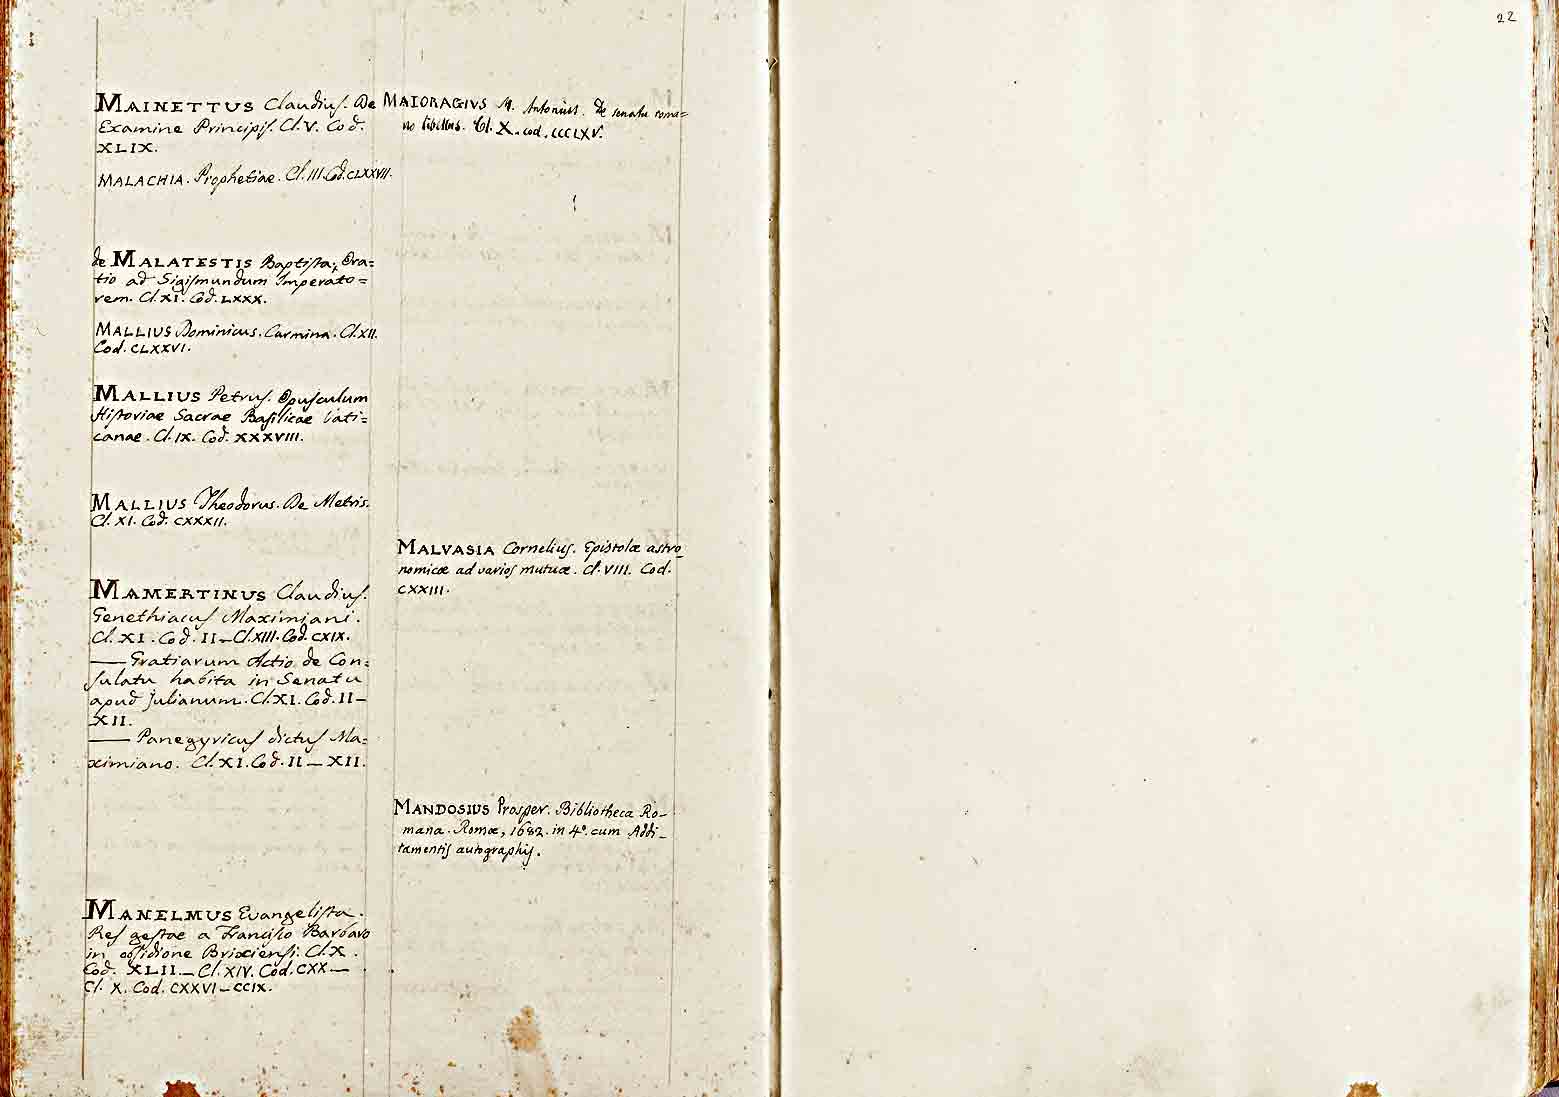 22
MAINETTUS Claudius. De
Examine Principis. Cl. V. Cod.
XLIX.
MALACHIA. Prophetiae. Cl. III. Cod. CLXXVII.
de MALATESTIS Baptista, Ora=
tio ad Sigismundum Imperato=
rem. Cl. XI. Cod. LXXX.
MALLIUS Dominicus. Carmina. Cl. XII.
Cod. CLXXVI.
MALLIUS Petrus. Opusculum
Historiae Sacrae Basilicae Vati=
canae. Cl. IX. Cod. XXXVIII.
MALLIUS Theodorus. De Metris.
Cl. XI. Cod. CXXXII.
MAMERTINUS Claudius.
Genethiacus Maximiani.
Cl. XI. Cod. II — Cl. XIII. Cod. CXIX.
—— Gratiarum Actio de Con=
sulatu habita in Senatu
apud Julianum. Cl. XI. Cod. II —
XII.
—— Panegyricus dictus Ma=
ximiano. Cl. XI. Cod. II — XII.
MANELMUS Evangelista.
Res gestae a Francisco Barbaro
in obsidione Brixiensi. Cl. X.
Cod. XLII — Cl. XIV. Cod. CXX —
Cl. X. Cod. CXXVI — CCIX.
MAIORAGIUS M. Antonius. De senatu roma=
no libellus. Cl. X. cod. CCCLXV.
MALVASIA Cornelius. Epistolæ astro_
nomicæ ad varios mutuæ. Cl. VIII. Cod.
CXXIII.
MANDOSIUS Prosper. Bibliotheca Ro_
mana. Romæ, 1682. in 4º. cum Addi_
tamentis autographis.